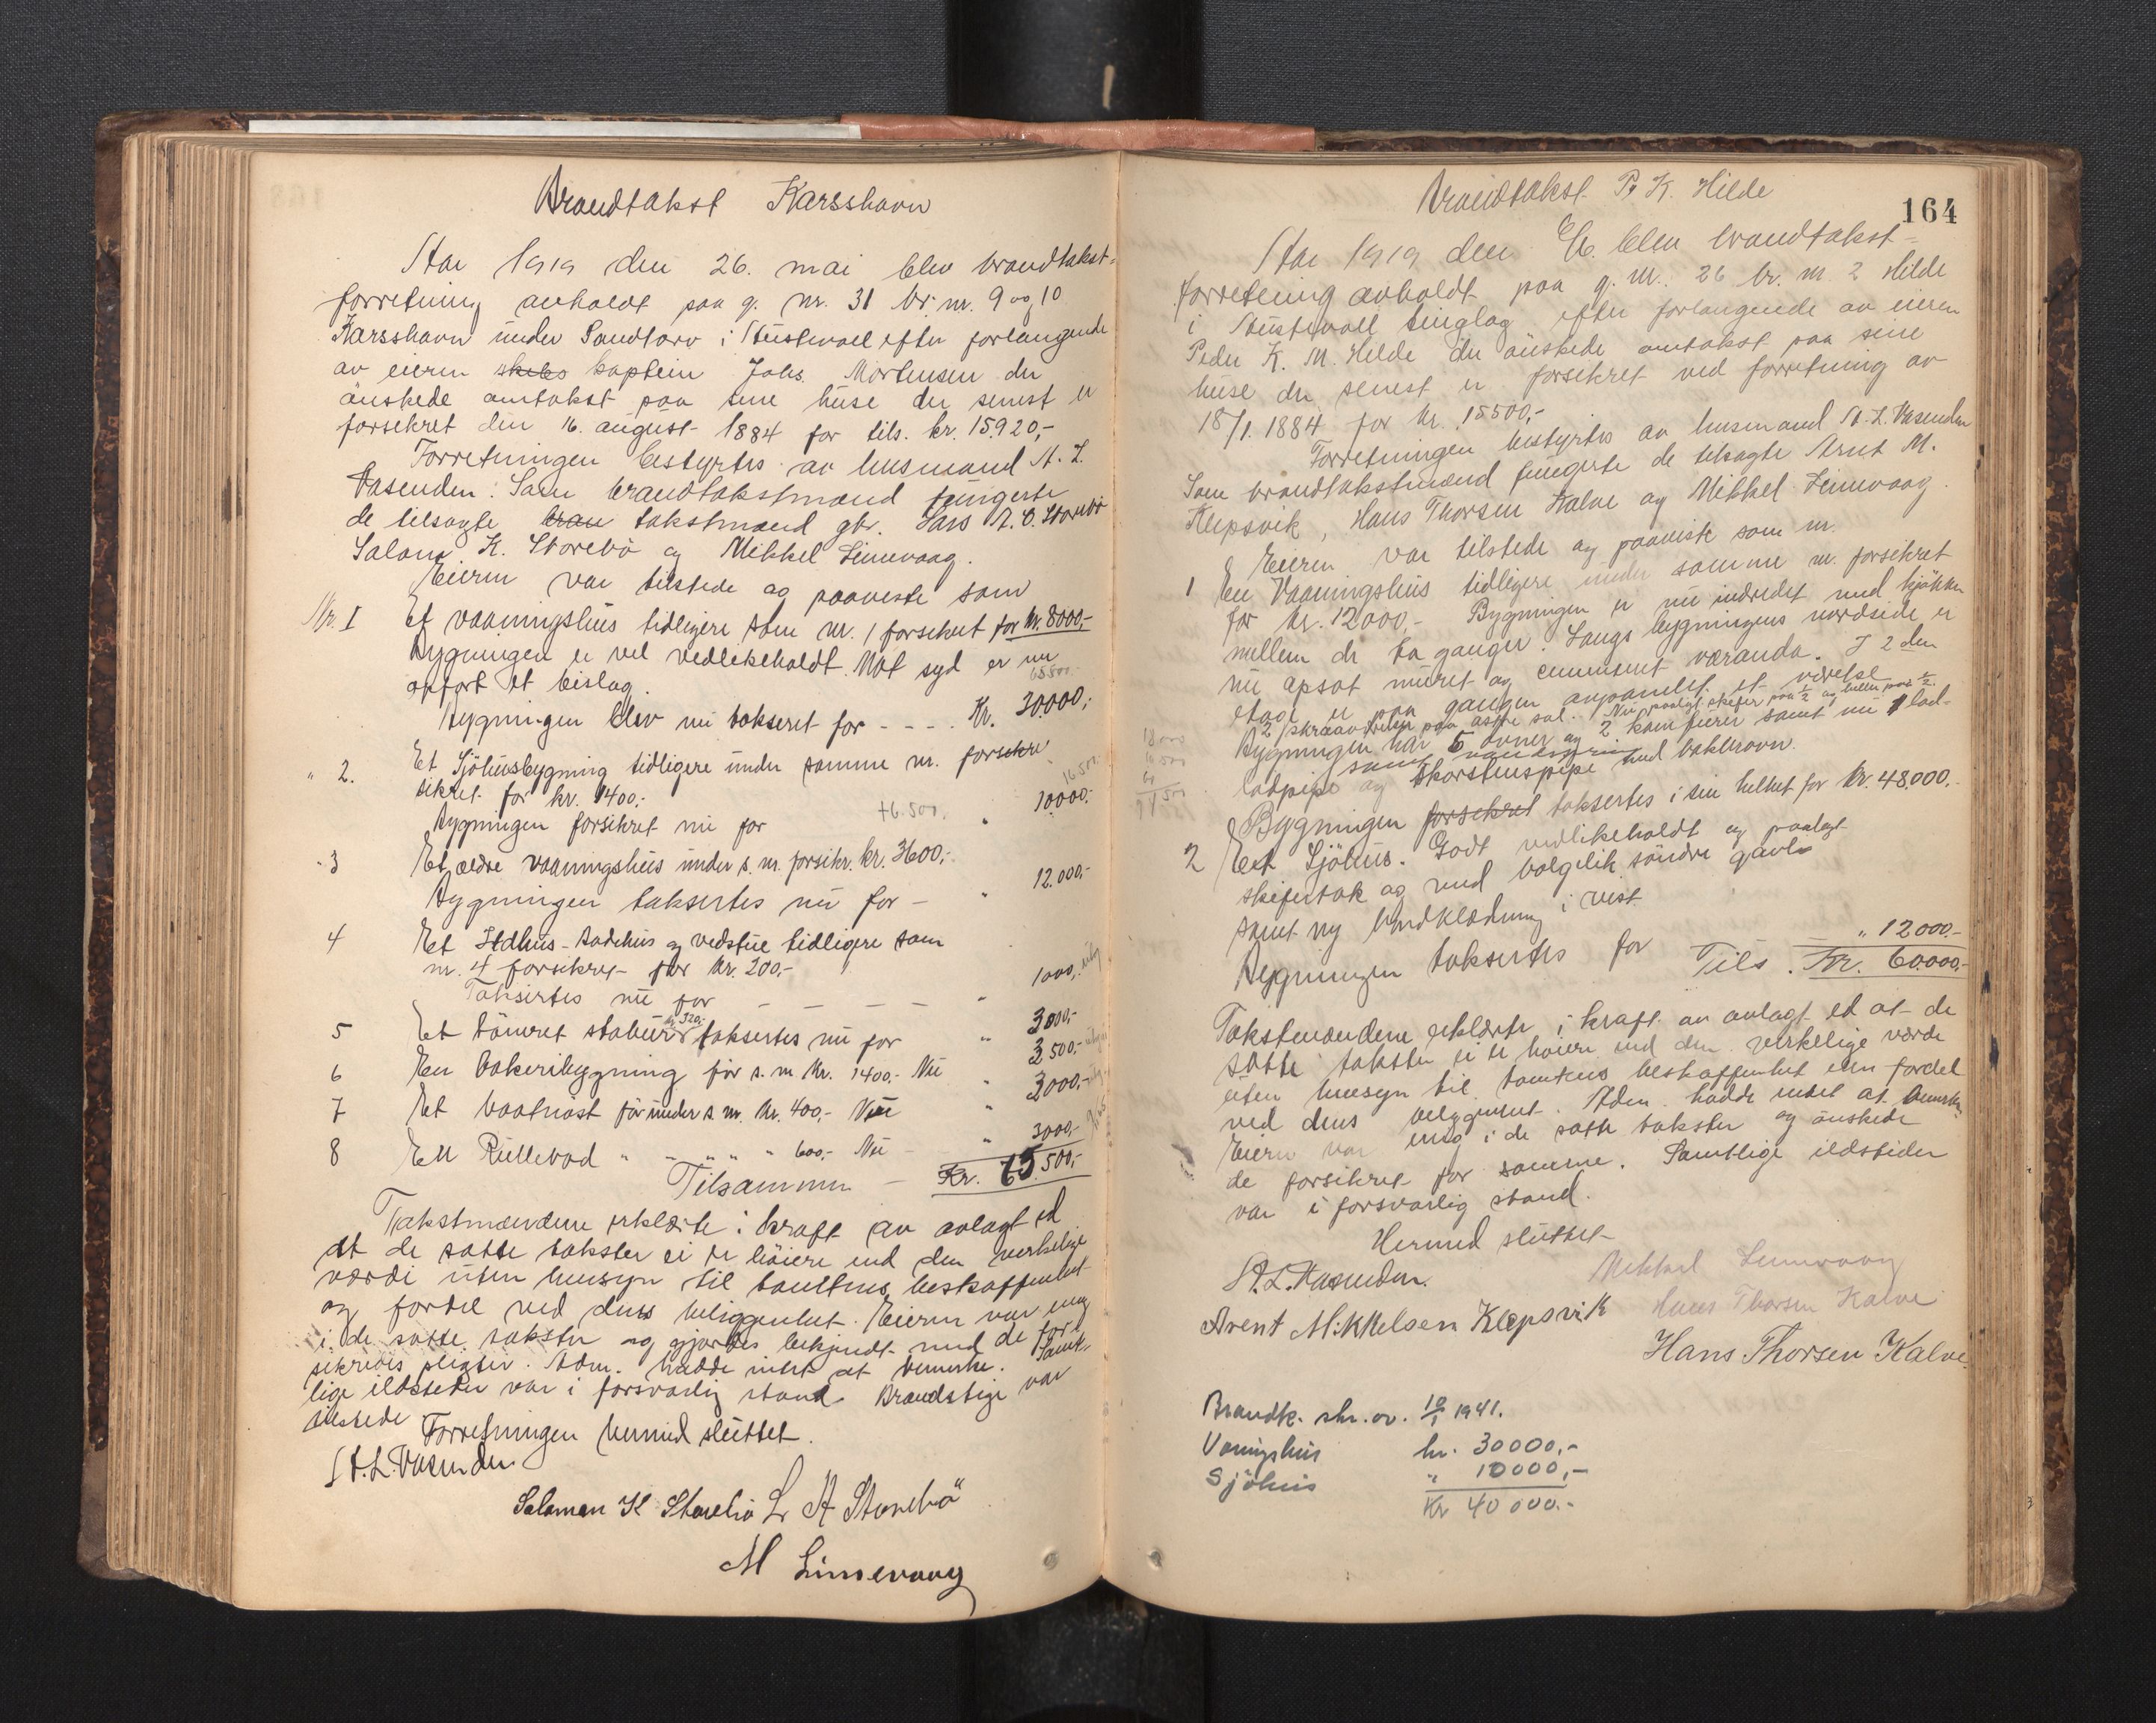 Brandtakst Karsshavn
Aar 1919 den 26. mai blev brandtakst=
forretning avholdt paa g. nr. 31 br. nr. 9 og 10
Karsshavn under Sandtorv i Austevoll efter forlangende
av eieren skibs kaptein Johs. Mortensen der
önskede omtakst paa sine huse der senest er
forsikret den 16. august 1884 for tils. kr. 15920,-
Forretningen bestyrtes av lensmand A. L.
Vasenden. Som brandtakstmænd fungerte
de tilsagte bran takstmænd gbr. Lars A. O. Storebö
Salomo K. Storebö og Mikkel Linnevaag.
Eieren var tilstede og paaviste som
Nr. I Et vaaningshus tidligere som nr. 1 forsikret for kr. 8000,-
Bygningen er vel vedlikeholdt. Mot syd er nu
opført et bislag. 65500
Bygningen blev nu takseret for - - - - Kr. 30000,-
" 2. Et Sjöhusbygning tidligere under samme nr. forsikre
sikret for kr. 1400,- 16500
Bygningen forsikret nu for 46.500. " 10000,-
" 3 Et ældre vaaningshus under s. nr. forsikr. kr. 3600,-
Bygningen taksertes nu for - " 12.000,-
4 Et Ildhus - Badehus og vedskue tidligere som
nr. 4 forsikret for kr. 200,-
Taksertes nu for - - - - " 1000,-
5 Et tömret stabur kr. 320,- taksertes nu for " 3000,-
6 En bakeribygning för s. nr. kr. 1400,- Nu " 3500,-
7 Et baatnöst för under s. nr. kr. 400,- Nu " 3000,-
8 En Rullebod " " " " " 600,- Nu - " 3000,-
Tilsammen - Kr. 65.500,-
Takstmændene erklærte i kraft av avlagt ed
at de satte takster ei er höiere end den verkelige
værdi uten hensyn til tomtens beskaffenhet
og fordel ved dens beliggenhet. Eieren var enig
i de satte takster og gjordes bekjendt med de for-
sikredes pligter. Adm. hadde intet at bemerke. Samt-
lige ildsteder var i forsvarlig stand. Brandstige var
tilstede
Forretningen hermed sluttet.
A. L. Vasenden
Salomon K Storebö L A Storebö
M Linnevaag
Brandtakst P. K. Hilde
164
Aar 1919 den blev brandtakst=
forretning avholdt paa g. nr. 26 br. nr. 2 Hilde
i Austevoll tinglag efter forlangende av eieren
Peder K. M. Hilde der önskede omtakst paa sine
huse der senest er forsikret ved forretning av
18/1. 1884 for kr. 15500,-
Forretningen bestyrtes av lensmand A. L. Vasenden
Som brandtakstmænd fungerte de tilsagte Arnt M.
Klepsvik, Hans Thorsen Kalve og Mikkel Linnevaag.
Eieren var tilstede og paaviste som nr.
1 En Vaaningshus tidligere under samme nr. forsikret
for kr. 12000,- Bygningen er nu indredet med kjökken
mellem de to ganger. Langs bygningens nordside er
nu opsat muret og cementert veranda. I 2den
etage er paa gangen avpanelet et værelse
2 skraaværelser paa östre sal. Nu paalagt skifer paa 1/2 og heller paa 1/2.
Bygningen har 5 ovner og 2 kaminer samt nu 1 lad-
samt vandspring
ladpipe og skorstenspipe med bakerovn.
Bygningen forsikret taksertes i sin helhet for kr. 48.000.-
2 Et Sjöhus. Godt vedlikeholdt og paalagt
skifertak og med bölgeblik söndre gavl
samt ny bordklædning i vest
Bygningen taksertes for " 12000.-
Tils. Kr. 60.000.-
Takstmændene erklærte i kraft av avlagt ed at de
satte takster ei er höiere end den verkelige værdi
uten hensyn til tomtens beskaffenhet eller fordel
ved dens beliggenhet. Adm. hadde intet at bemerke
Eieren var enig i de satte takster og önskede
de forsikret for samme. Samtlige ildsteder
var i forsvarlig stand.
Hermed sluttet
A. L. Vasenden. Mikkel Linnevaag
Arent Mikkelsen Klepsvik Hans Thorsen Kalve
Hans Thorsen Kalve
Brandk. skr. av 10/1 1941.
Vaningshus kr. 30000,-
Sjöhus " 10000,-
Kr 40000.-